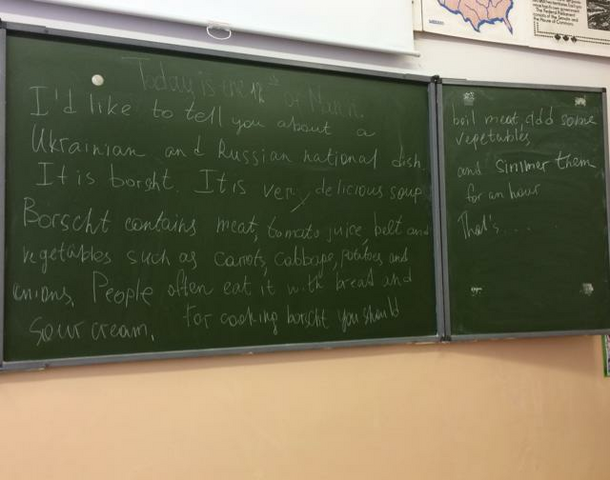 Today is the 12th of March.
I'd like to tell you about a
Ukrainian and Russian national dish.
It is borsht. It is very delicious soup.
Borscht contains meat, tomato juice, belt and
vegetables such as carrots, cabbage, potatoes, and
onions. People often eat it with bread and
sour cream. For cooking borscht you should
boil meat, add some
vegetables
and simmer them
for an hour
That's......